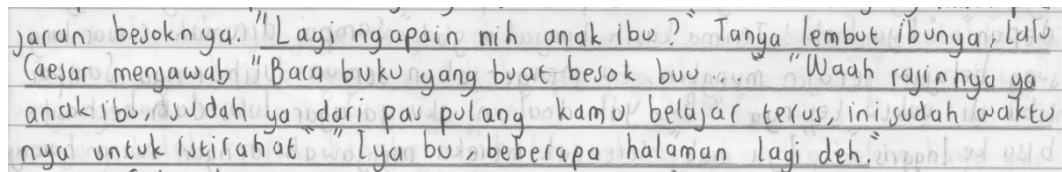 jaran besoknya. "Lagi ngapain nih anak ibu?" Tanya lembut ibunya, lalu
Caesar menjawab "Baca buku yang buat besok buu...." "Waah rajinnya ya
anak ibu, sudah ya dari pas pulang kamu belajar terus, ini sudah waktu
nya untuk istirahat" "Iya bu, beberapa halaman lagi deh."